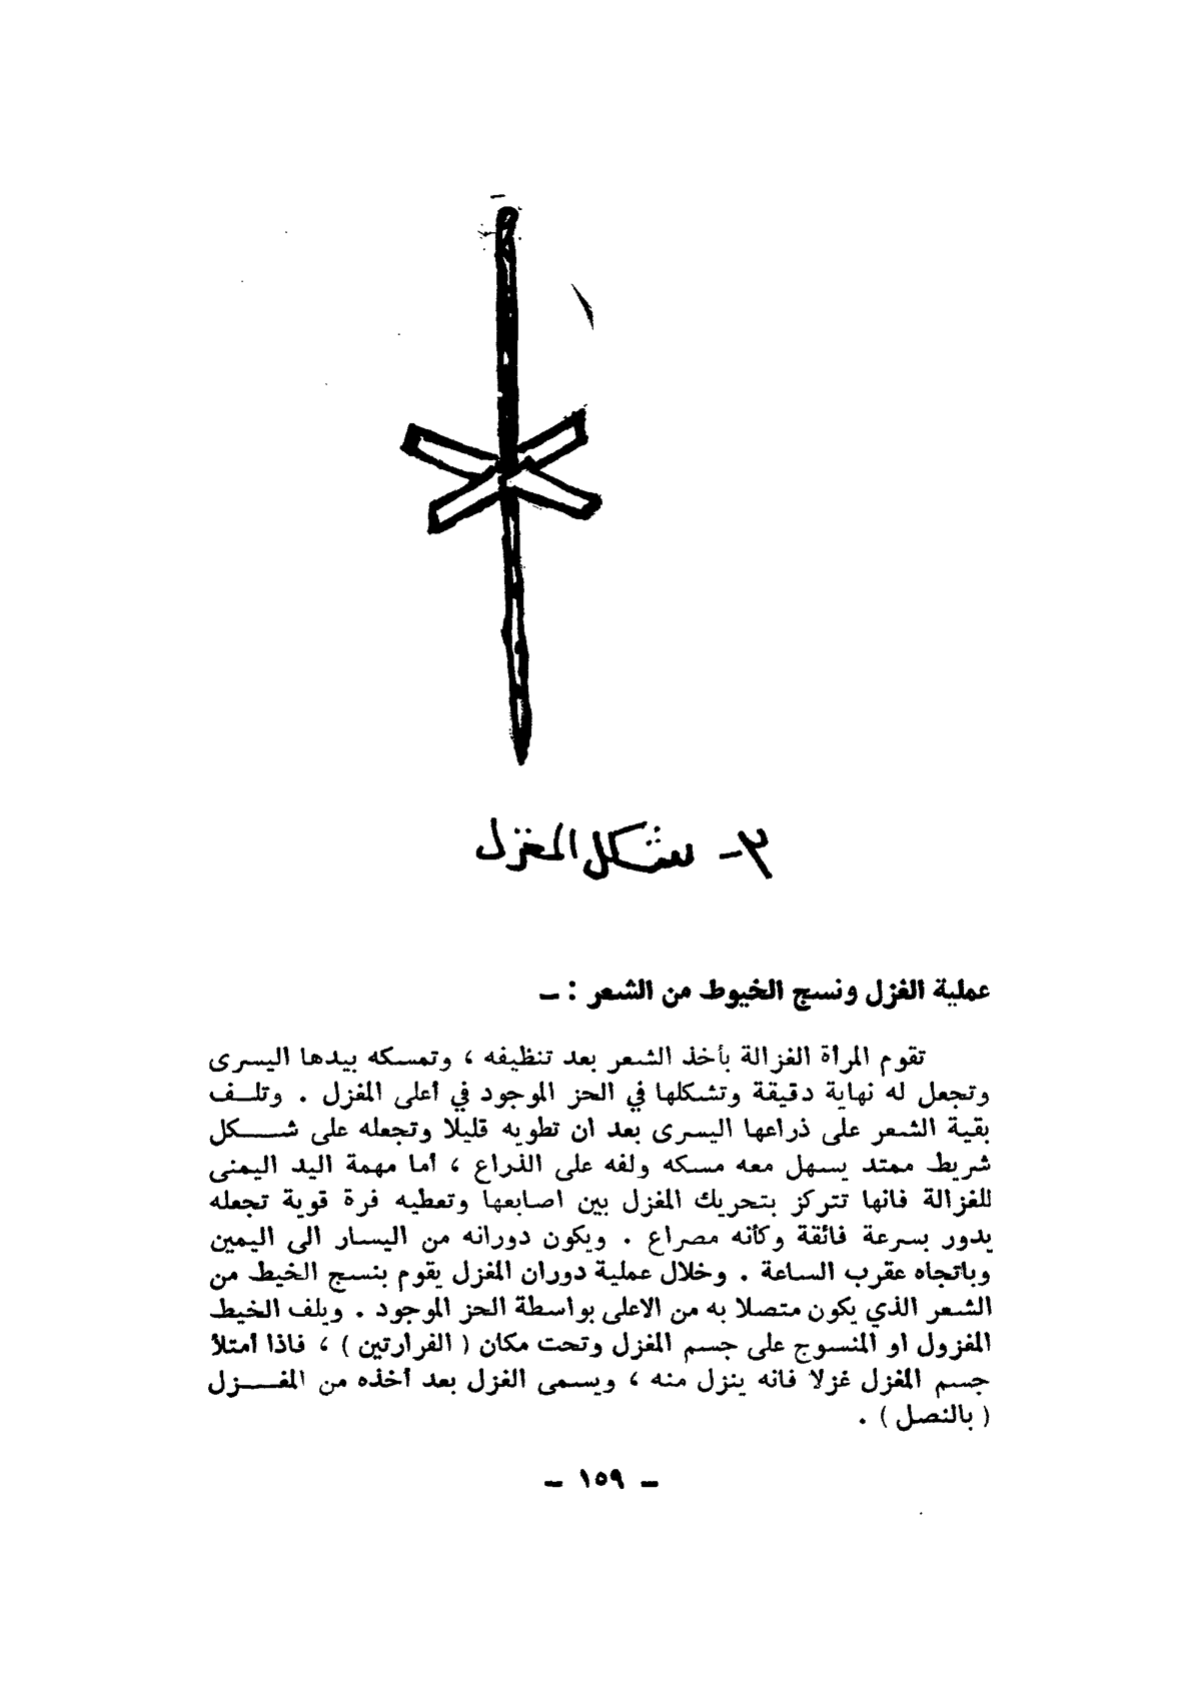 ٣- شكل المغزل
عملية الغزل ونسج الخيوط من الشعر : ــ
تقوم المرأة الغزالة بأخذ الشعر بعد تنظيفه ، وتمسكه بيدها اليسرى
وتجعل له نهاية دقيقة وتشكلها في الحز الموجود في أعلى المغزل . وتلــف
بقية الشعر على ذراعها اليسرى بعد ان تطويه قليلا وتجعله على شــــكل
شريط ممتد يسهل معه مسكه ولفه على الذراع ، أما مهمة اليد اليمنى
للغزالة فانها تتركز بتحريك المغزل بين اصابعها وتعطيه فرة قوية تجعله
يدور بسرعة فائقة وكأنه مصراع . ويكون دورانه من اليسار الى اليمين
وباتجاه عقرب الساعة . وخلال عملية دوران المغزل يقوم بنسج الخيط من
الشعر الذي يكون متصلا به من الاعلى بواسطة الحز الموجود . ويلف الخيط
المغزول او المنسوج على جسم المغزل وتحت مكان ( الفرارتين ) ، فاذا أمتلأ
جسم المغزل غزلا فانه ينزل منه ، ويسمى الغزل بعد أخذه من المغــــزل
( بالنصل ) .
ــ ١٥٩ ــ